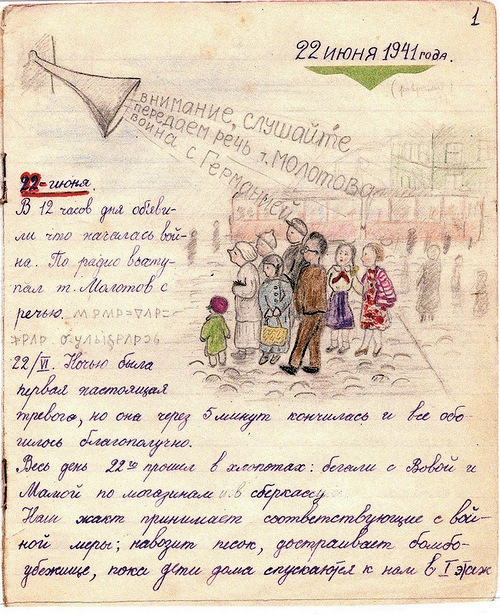 1
22 июня 1941 года.
внимание, слушайте
передаем речь т. Молотова
война с Германией
22-июня
В 12 часов дня объяви-
ли что началась вой-
на. По радио высту-
пал т. Молотов с
речью.
22/VI. Ночью была
первая настоящая
тревога, но она через 5 минут кончилась и все обо-
шлось благополучно.
Весь день 22го прошел в хлопотах: бегали с Вовой и
Мамой по магазинам и в сберкассу.
Наш жакт принимает соответствующие с вой-
ной меры; навозит песок, достраивает бомбо-
убежище, пока дети дома спускаются к нам в I этаж